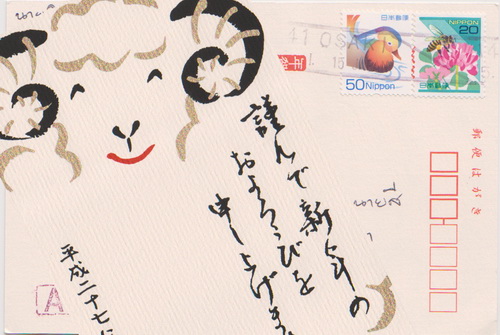 OSA
年賀
日本郵便
50 Nippon
NIPPON
20
日本郵便
郵便はがき
謹んで新年の
およろこびを
申し上げま
นายสี
平成二十七
A